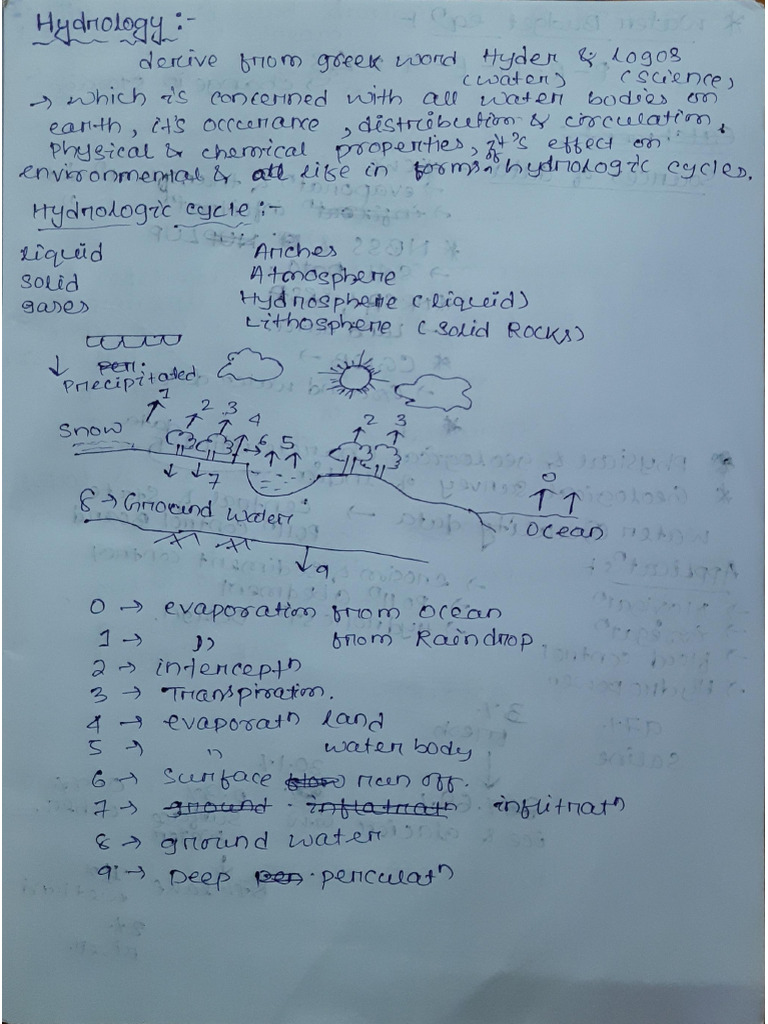 Hydrology :-
derive from greek word Hyder & Logos
(water) (science)
→ which is concerned with all water bodies on
earth, it's occurance, distribution & circulation,
Physical & chemical properties, it's effect on
environmental & all life in forms of hydrologic cycles.
Hydrologic cycle :-
Liquid Arches
Solid Atmosphere
gases Hydrosphere (liquid)
Lithosphere (Solid Rocks)
↓ Precipitated
1 2 3 4 6 5 2 3
Snow
7
0
8 → Ground water
Ocean
9
0 → evaporation from Ocean
1 → ,, from Raindrop
2 → intercептn
3 → Transpiration.
4 → evaporatn land
5 → ,, water body
6 → Surface run off.
7 → ground inflatratn infiltratn
8 → ground water
9 → Deep perculatn